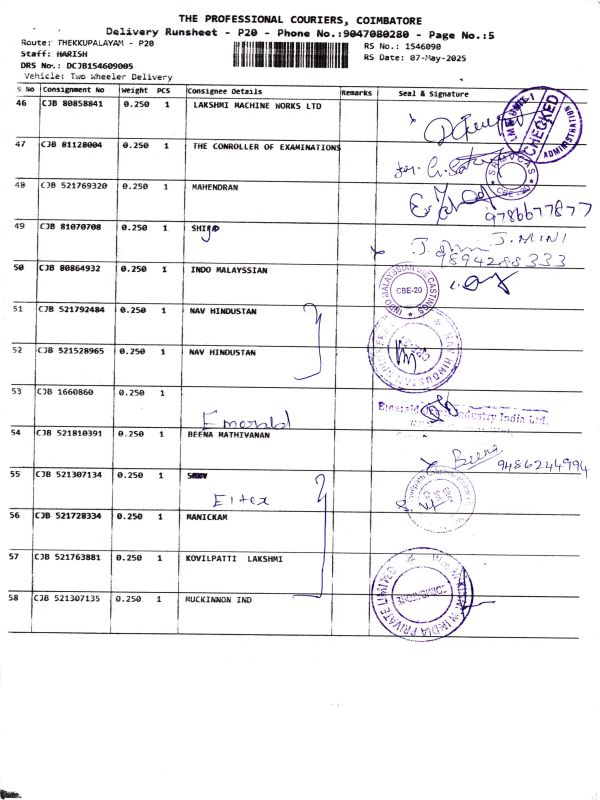 THE PROFESSIONAL COURIERS, COIMBATORE
Delivery Runsheet - P20 - Phone No.:9047080280 - Page No.:5
Route: THEKKUPALAYAM - P20
Staff: HARISH
DRS No.: DCJB154609005
Vehicle: Two Wheeler Delivery
RS No.: 1546090
RS Date: 07-May-2025
S No Consignment No Weight PCS Consignee Details Remarks Seal & Signature
46 CJB 80858841 0.250 1 LAKSHMI MACHINE WORKS LTD
CHECKED
47 CJB 81128004 0.250 1 THE CONROLLER OF EXAMINATIONS
48 CJB 521769320 0.250 1 MAHENDRAN
9786677877
49 CJB 81070708 0.250 1
J. MINI
9894288333
50 CJB 80864932 0.250 1 INDO MALAYSSIAN
INDO MALAYSSIAN CASTINGS
CBE-20
51 CJB 521792484 0.250 1 NAV HINDUSTAN
52 CJB 521528965 0.250 1 NAV HINDUSTAN
53 CJB 1660860 0.250 1
Emerald
Emerald Industry India Ltd.
54 CJB 521810391 0.250 1 BEENA MATHIVANAN
Beena
9486244994
55 CJB 521307134 0.250 1
Eltex
56 CJB 521728334 0.250 1 MANICKAM
57 CJB 521763881 0.250 1 KOVILPATTI LAKSHMI
58 CJB 521307135 0.250 1 MUCKINNON IND
INDIA PRIVATE LIMITED